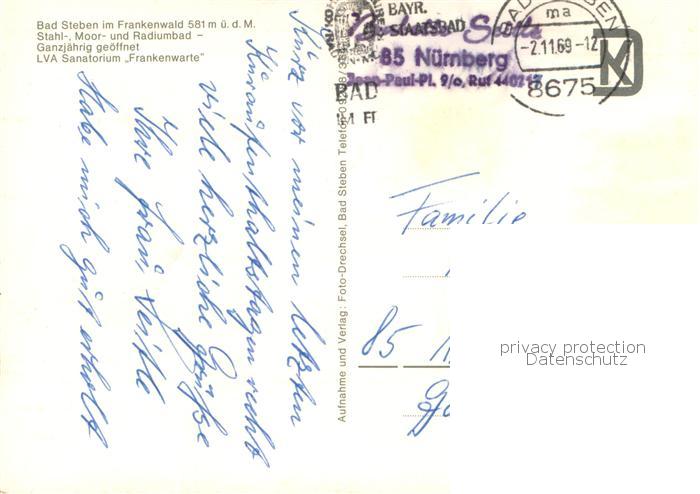 Bad Steben im Frankenwald 581 m ü. d. M.
Stahl-, Moor- und Radiumbad –
Ganzjährig geöffnet
LVA Sanatorium „Frankenwarte"
Kurz vor meinen letzten
Kuraufenthaltstagen recht
viele herzliche Grüße
Ihre Frau
Habe mich gut erholt
Aufnahme und Verlag: Foto-Drechsel, Bad Steben Telefon
BAYR.
STAATSBAD
BAD
85 Nürnberg
Jean-Paul-Pl. 9/o, Ruf
ma
-2.11.69-12
8675
Familie
85
privacy protection
Datenschutz